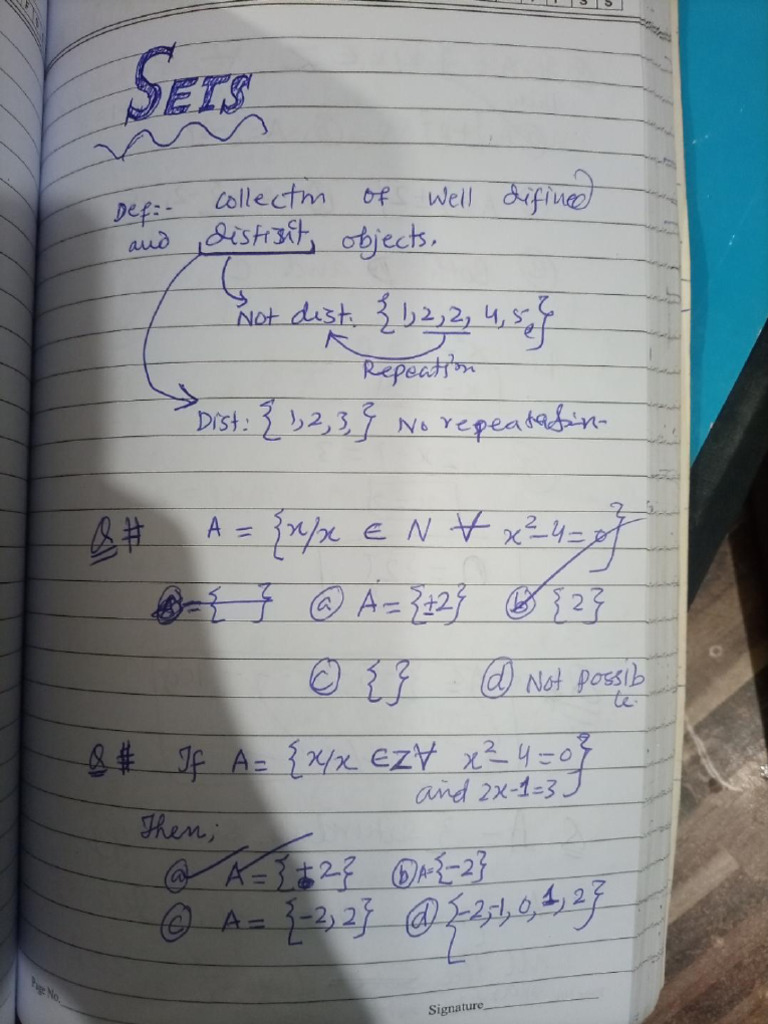 SETS
Def:- collectin of well difined
and distisit, objects.
Not dist. {1,2,2, 4,5}
Repeation
Dist: {1,2,3,} No repeatatin-
Q # A = {x/x ∈ N ∀ x²-4=0}
= { } (a) A = {±2} (b) {2}
(c) { } (d) Not possib
le.
Q # If A = {x/x ∈ Z ∀ x²-4=0}
and 2x-1=3
Then;
(a) A = {±2} (b) A={-2}
(c) A = {-2, 2} (d) {-2,-1, 0, 1, 2}
Page No.
Signature